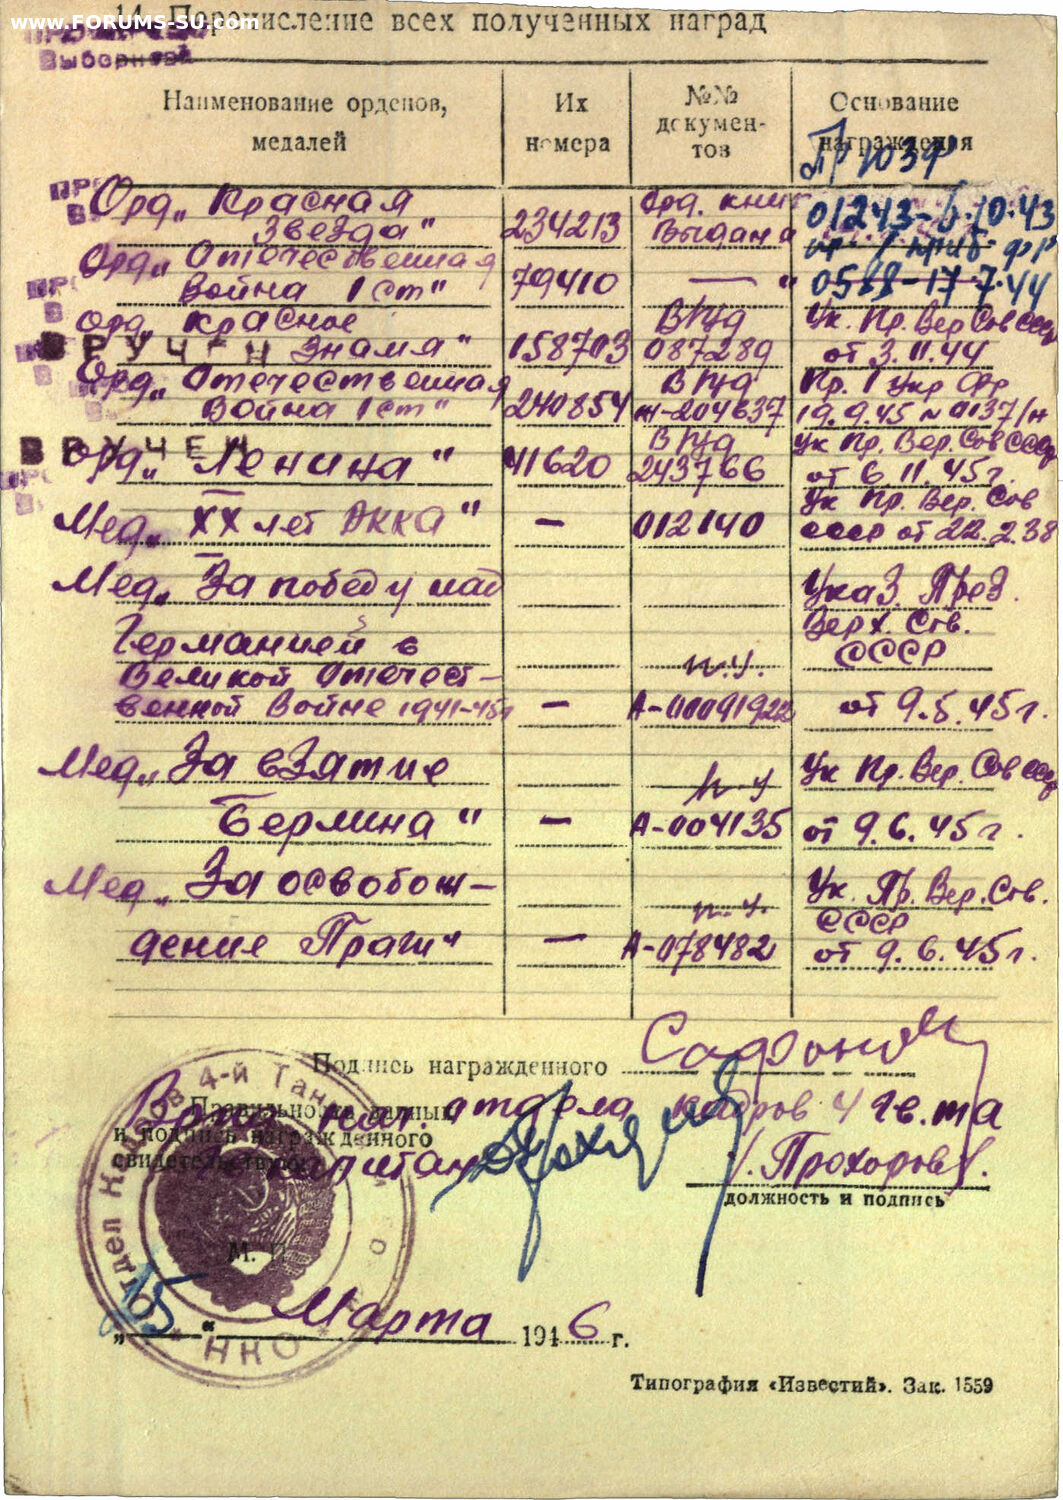 www.FORUMS-SU.com
14. Перечисление всех полученных наград
Выборнова
Наименование орденов, медалей Их номера №№ документов Основание награждения
Пр ЮЗФ
Орд. „Красная Орд. книг 01243-6.10.43
Звезда" 234213 Выдана
Орд. „Отечественная
Война 1 ст" 79410 — " 0588-17.7.44
Орд. „Красное ВРУД Ук. Пр. Вер Сов СССР
ВРУЧЕН Знамя" 158703 087289 от 3.11.44
Орд. „Отечественная Пр. 1 Укр Фр
Война 1 ст" 240854 204637 19.9.45 № 0137/н
ВРУЧЕН Ук Пр. Вер. Сов СССР
Орд. „Ленина" 41620 243766 от 6.11.45г.
Ук Пр. Вер. Сов
Мед. „ХХ лет РККА" — 012140 СССР от 22.2.38
Мед. „За победу над Указ. През.
Верх. Сов.
Германией в СССР
Великой Отечест-
венной Войне 1941-45г — А-0009192 от 9.5.45г.
Мед. „За взятие Ук Пр. Вер. Сов СССР
Берлина" — А-004135 от 9.6.45г.
Мед. „За освобож- Ук. Пр. Вер. Сов.
СССР
дение Праги" — А-078482 от 9.6.45г.
Подпись награжденного Сафонов
Правильность данных отдела кадров 4 гв. та
и подпись награжденного
свидетельствую: капитан /Прохоров/.
должность и подпись
Отдел Кадров 4-й Танк
М. П.
„15" Марта 1946 г.
Типография «Известий». Зак. 1559